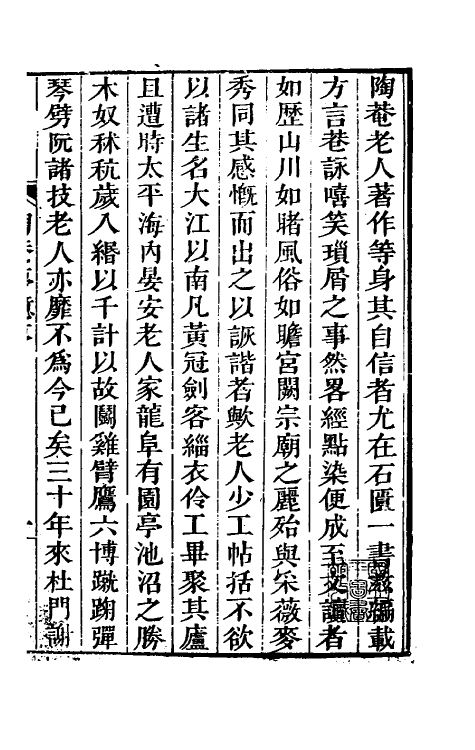 陶菴老人著作等身其自信者尤在石匱一書茲編載
方言巷詠嘻笑瑣屑之事然畧經點染便成至文讀者
如歷山川如睹風俗如瞻宮闕宗廟之麗殆與采薇麥
秀同其感慨而出之以詼諧者歟老人少工帖括不欲
以諸生名大江以南凡黃冠劍客緇衣伶工畢聚其廬
且遭時太平海內晏安老人家龍阜有園亭池沼之勝
木奴秫秔歲入緡以千計以故鬬雞臂鷹六博蹴踘彈
琴劈阮諸技老人亦靡不爲今已矣三十年來杜門謝